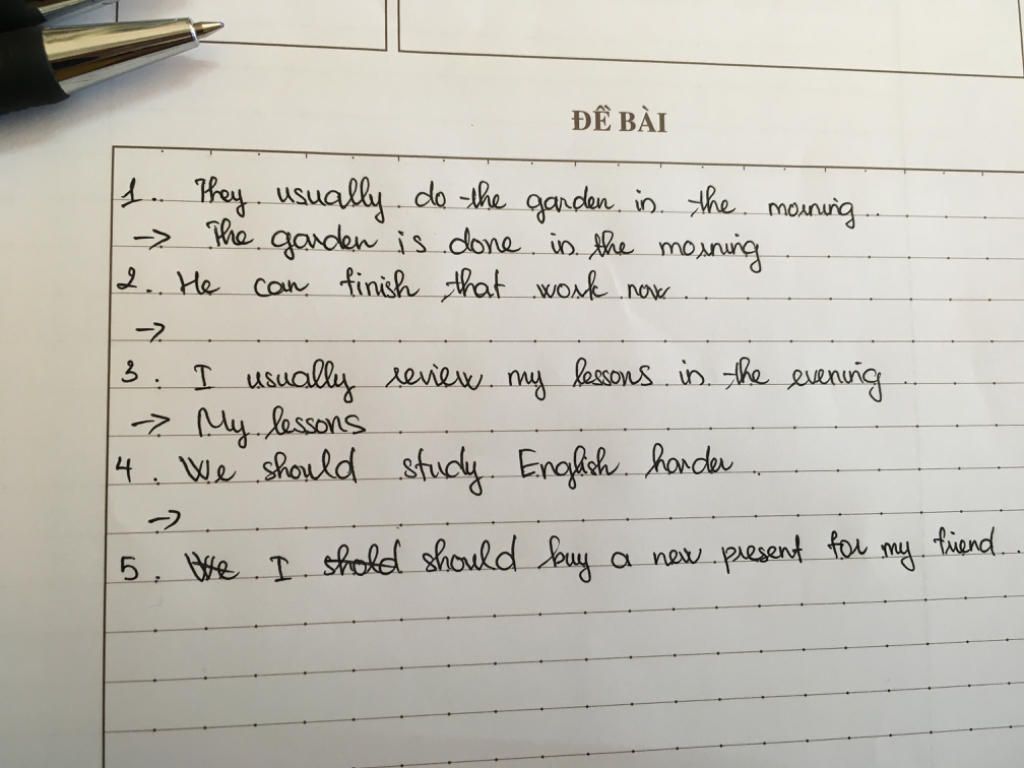 ĐỀ BÀI
1. They usually do the garden in the morning
→ The garden is done in the morning
2. He can finish that work now
→
3. I usually review my lessons in the evening
→ My lessons
4. We should study English harder
→
5. We I shold should buy a new present for my friend